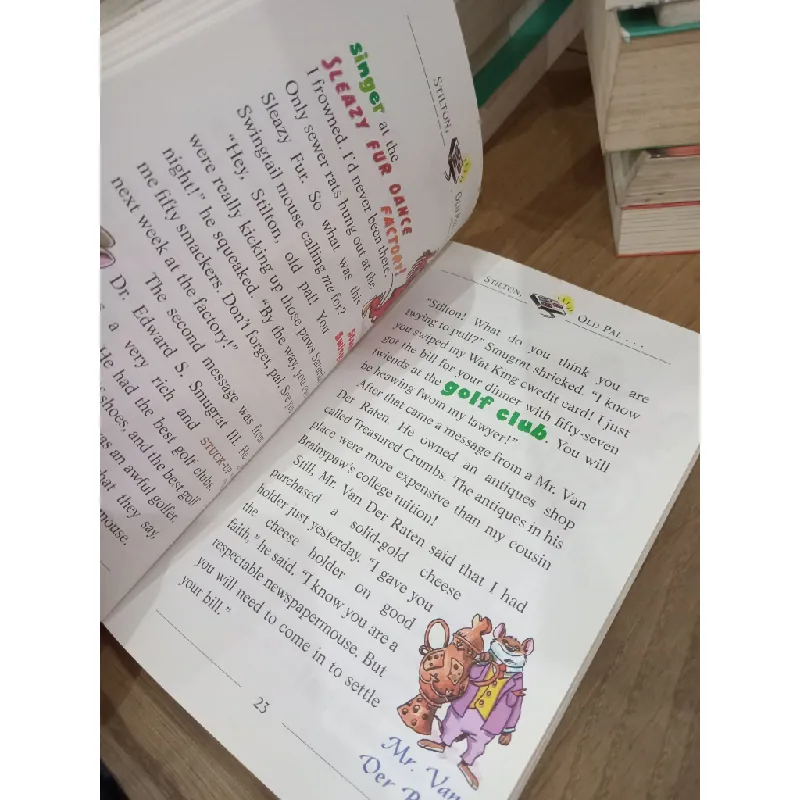 STILTON,
OLD
singer at the
SLEAZY FUR DANCE
FACTORY!
I frowned. I'd never been there.
Only sewer rats hung out at the
Sleazy Fur. So what was this
Swingtail mouse calling me for?
"Hey, Stilton, old pal! You
were really kicking up those paws
night!" he squeaked. "By the way, you
me fifty smackers. Don't forget, pal. See you
next week at the factory!"
The second message was from
Dr. Edward S. Smugrat III. He
a very rich and STUCK-UP
He had the best golf clubs,
shoes, and the best golf
as an awful golfer.
hat they say,
mouse.
STILTON,
OLD PAL . . .
"Stilton! What do you think you are
twying to pull?" Smugrat shricked. "I know
you swiped my Wat King cwedit card! I just
got the bill for your dinner with fifty-seven
fwiends at the golf club. You will
be heawing fwom my lawyer!"
After that came a message from a Mr. Van
Der Raten. He owned an antiques shop
called Treasured Crumbs. The antiques in his
place were more expensive than my cousin
Brainypaw's college tuition!
Still, Mr. Van Der Raten said that I had
purchased a solid-gold cheese
holder just yesterday. "I gave you
the cheese holder on good
faith," he said. "I know you are a
respectable newspapermouse. But
you will need to come in to settle
your bill."
Mr. Van
Der
25